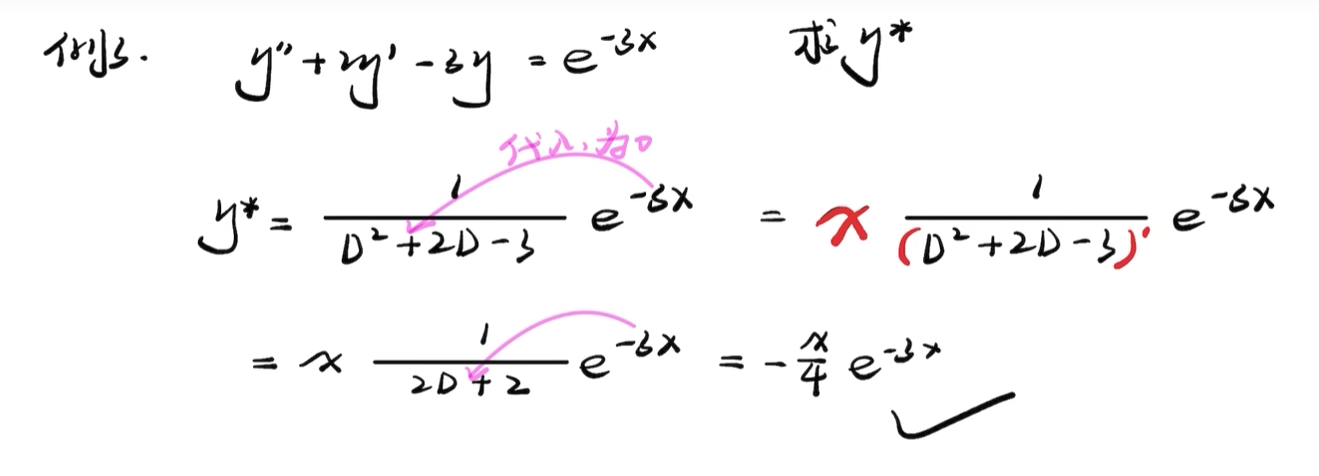 例3. y'' + 2y' - 3y = e^{-3x} 求 y*
代入,为0
y* = \frac{1}{D^2 + 2D - 3} e^{-3x} = x \frac{1}{(D^2 + 2D - 3)'} e^{-3x}
= x \frac{1}{2D + 2} e^{-3x} = -\frac{x}{4} e^{-3x}